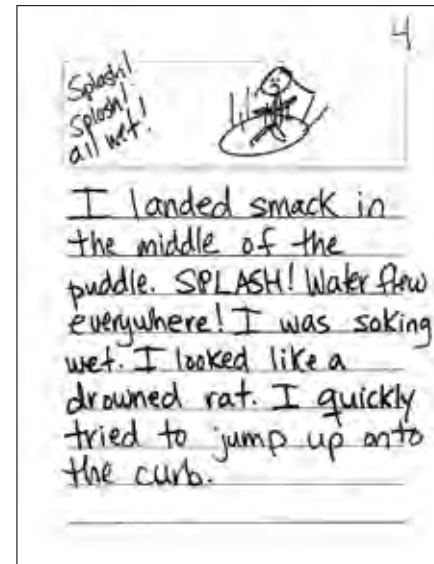 4
Splash!
Splash!
all wet!
I landed smack in
the middle of the
puddle. SPLASH! Water flew
everywhere! I was soking
wet. I looked like a
drowned rat. I quickly
tried to jump up onto
the curb.